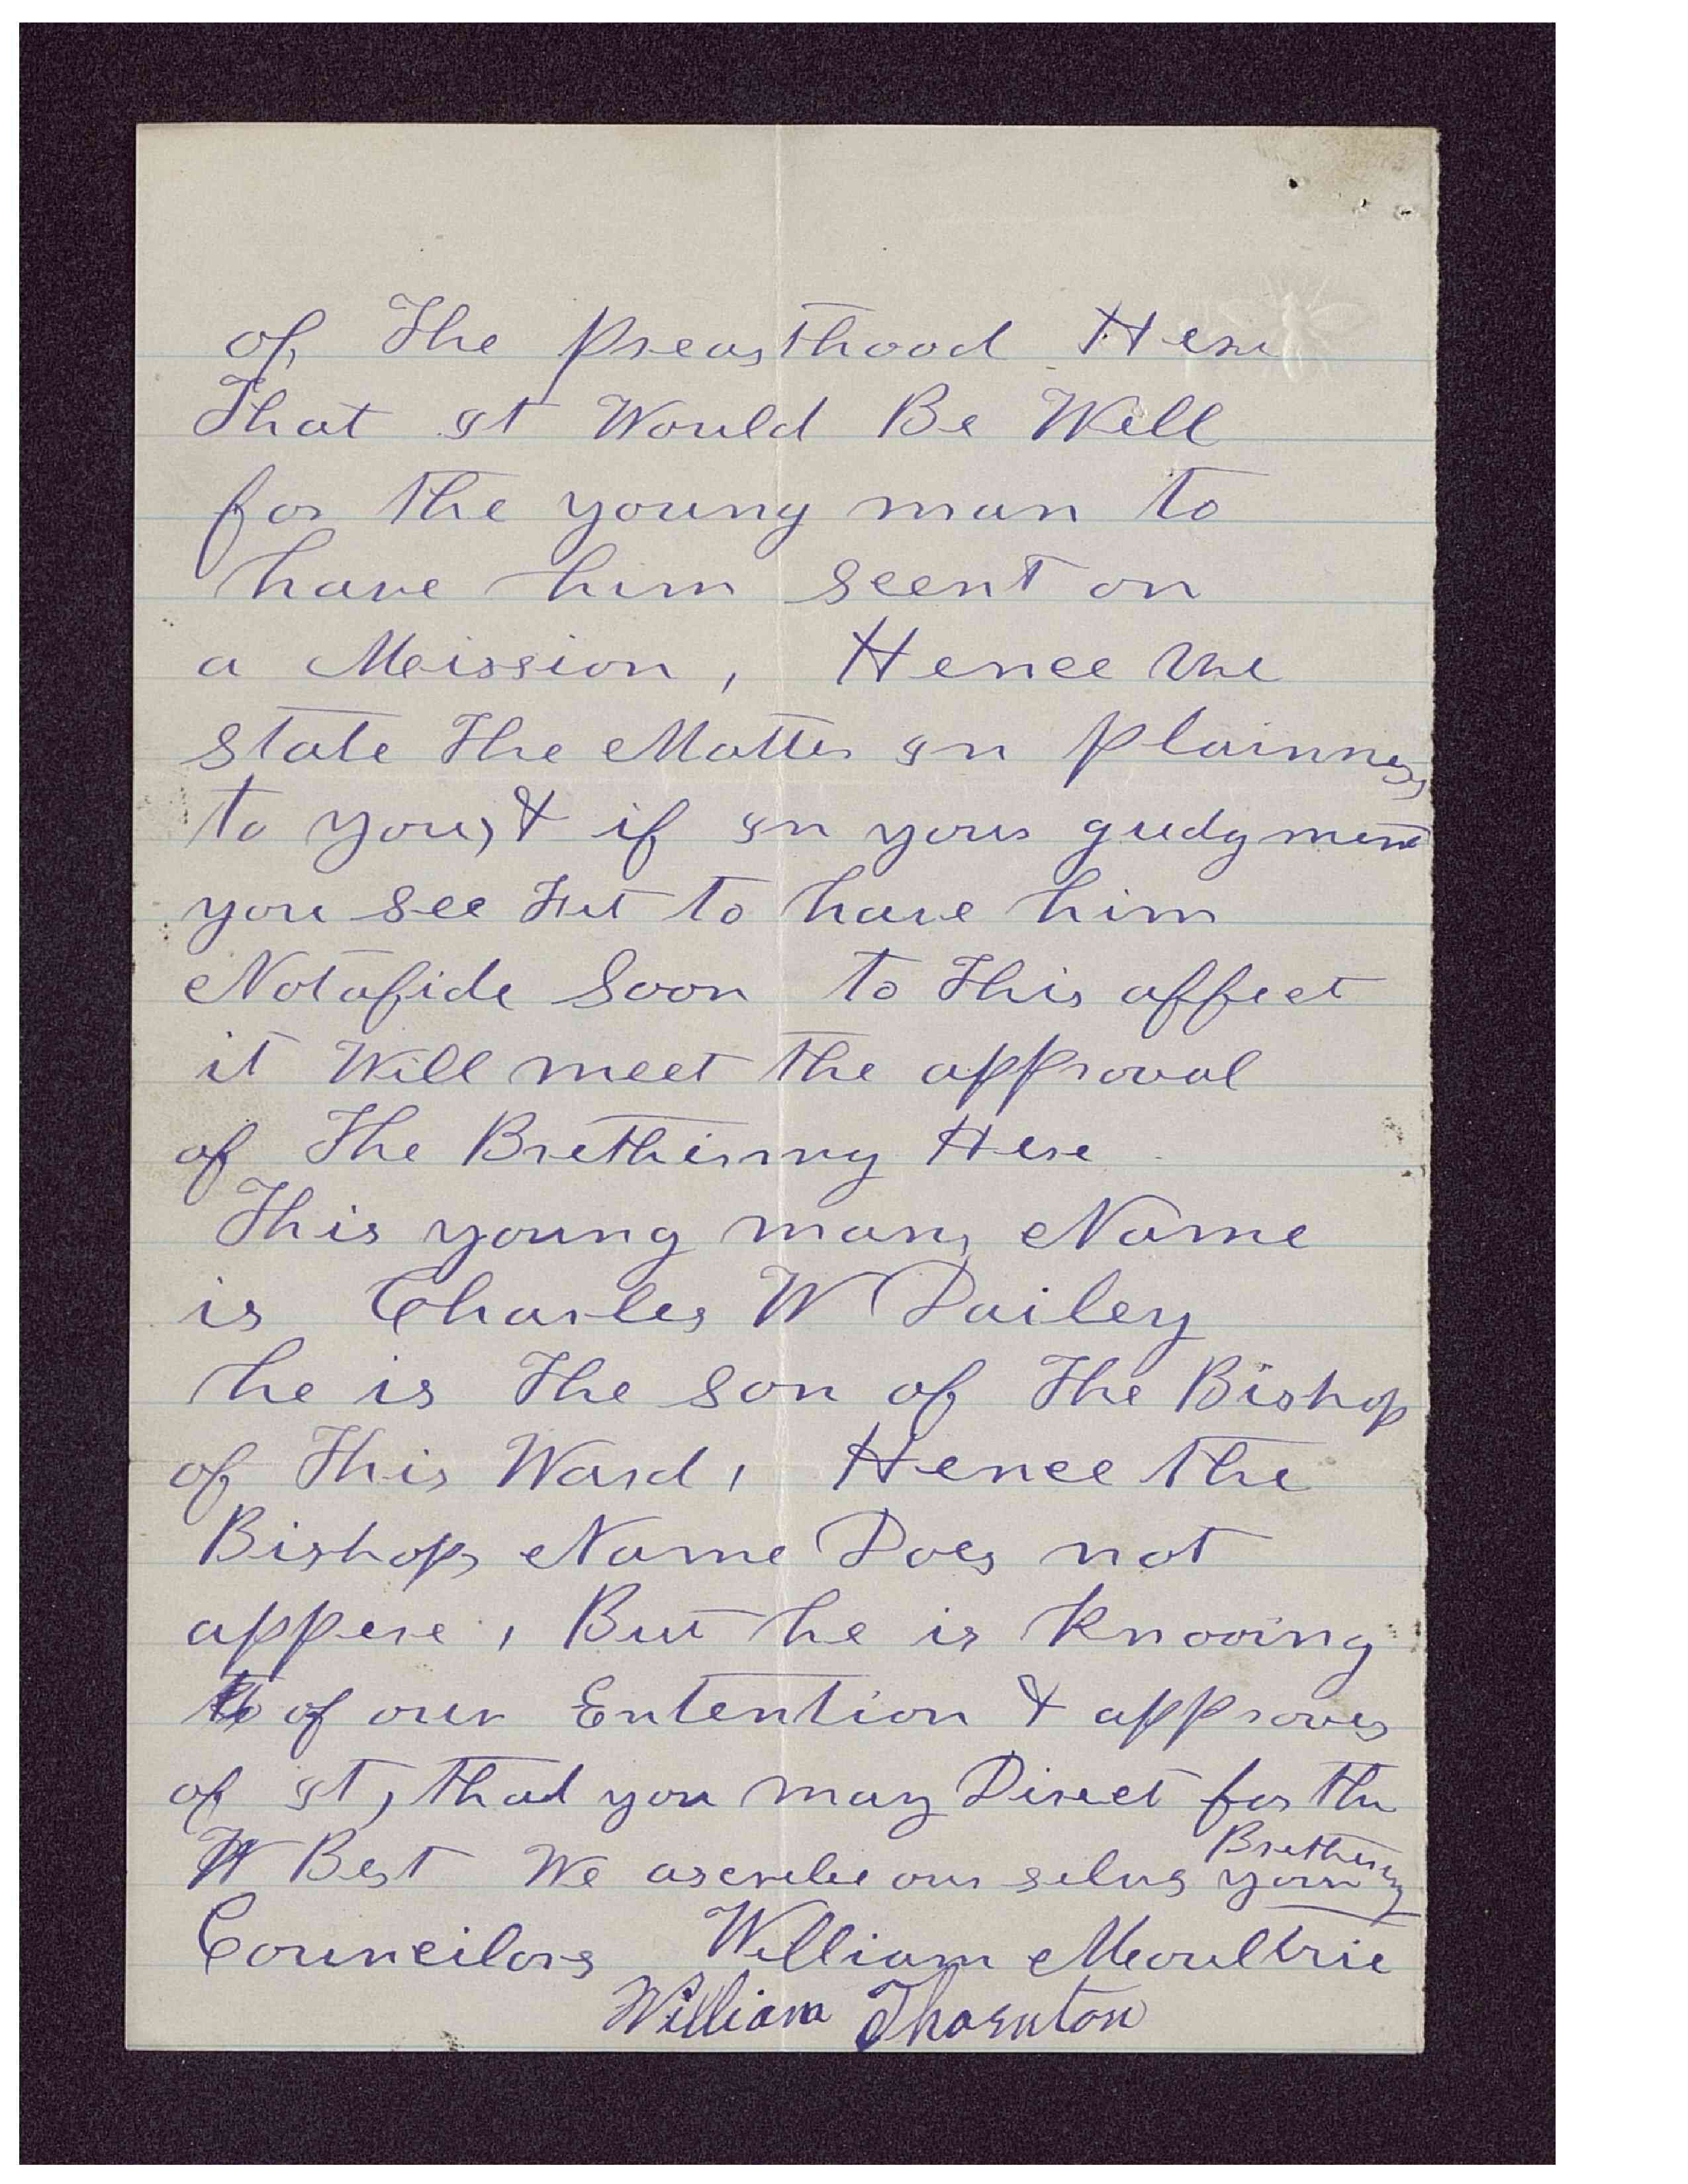 of The Preasthood Here
That it Would Be Well
for the young man to
have him seent on
a Meission, Hence We
state The Matter in Plainness
to you, & if in your gudgment
you see Fit to have him
Notafide Soon to This affect
it Will meet the approval
of The Bretherny Here
This young mans Name
is Charles W Dailey
he is The son of The Bishop
of This Ward, Hence the
Bishops Name Does not
appere, But he is knooing
of our Entention & approves
of it, that you may Direct for the
Best We ascribe our selvs your Bretherny
Councilors William Moultrie
William Thornton